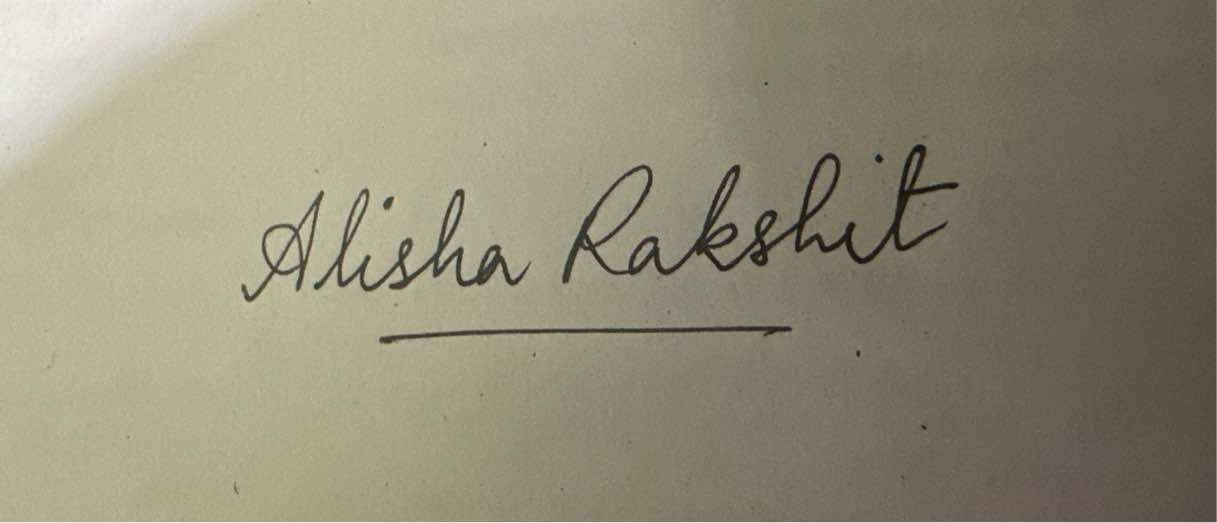 Alisha Rakshit